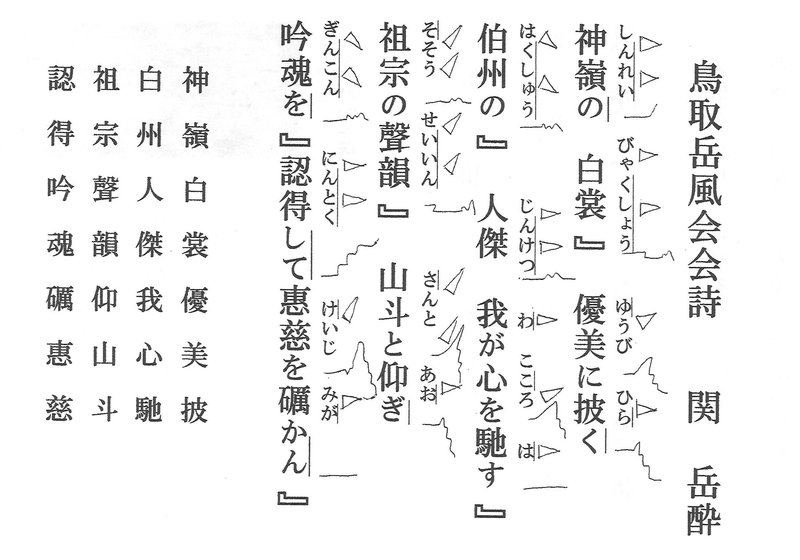 鳥取岳風会会詩 関 岳酔
しんれい びゃくしょう ゆうび ひら
神嶺の 白裳』 優美に披く
はくしゅう じんけつ わ こころ は
伯州の』 人傑 我が心を馳す』
そそう せいいん さんと あお
祖宗の聲韻』 山斗と仰ぎ
ぎんこん にんとく けいじ みが
吟魂を『認得して惠慈を礪かん』
神嶺白裳優美披
白州人傑我心馳
祖宗聲韻仰山斗
認得吟魂礪惠慈